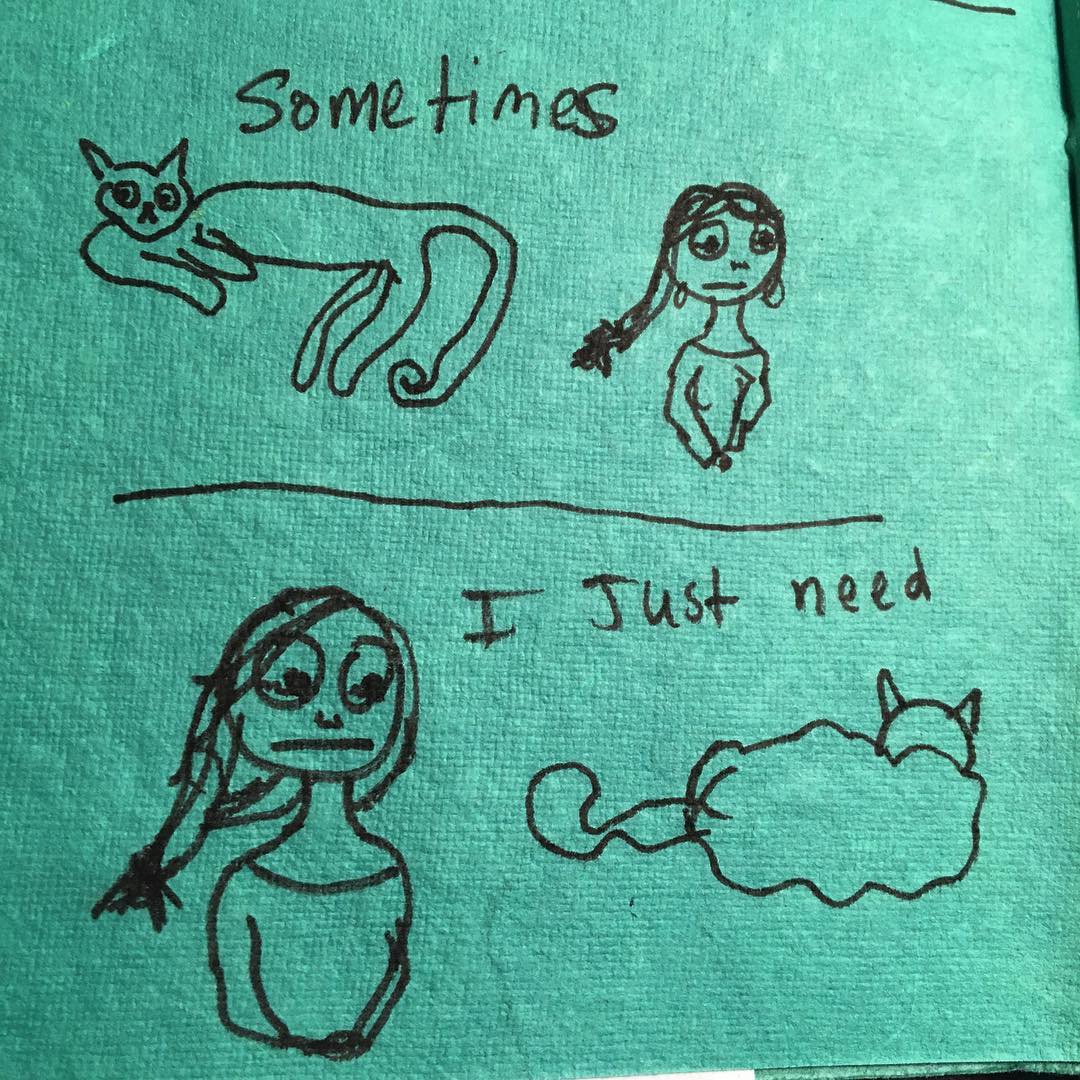 Sometimes
I Just need